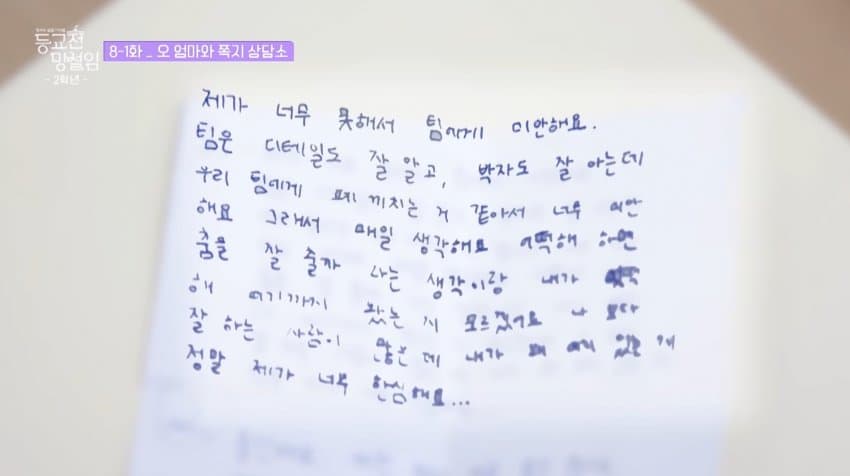 등교전
망설임
- 2학년 -
8-1화 _ 오 엄마와 쪽지 상담소
제가 너무 못해서 팀에게 미안해요.
팀은 디테일도 잘 알고, 박자도 잘 아는데
우리 팀에게 폐 끼치는 거 같아서 너무 미안
해요 그래서 매일 생각해요 어떡해 하면
춤을 잘 출까 라는 생각이랑 내가 어떡
해 여기까지 왔는 지 모르겠어요 나 보다
잘 하는 사람이 많은 데 내가 왜 여기 있는 게
정말 제가 너무 한심해요...